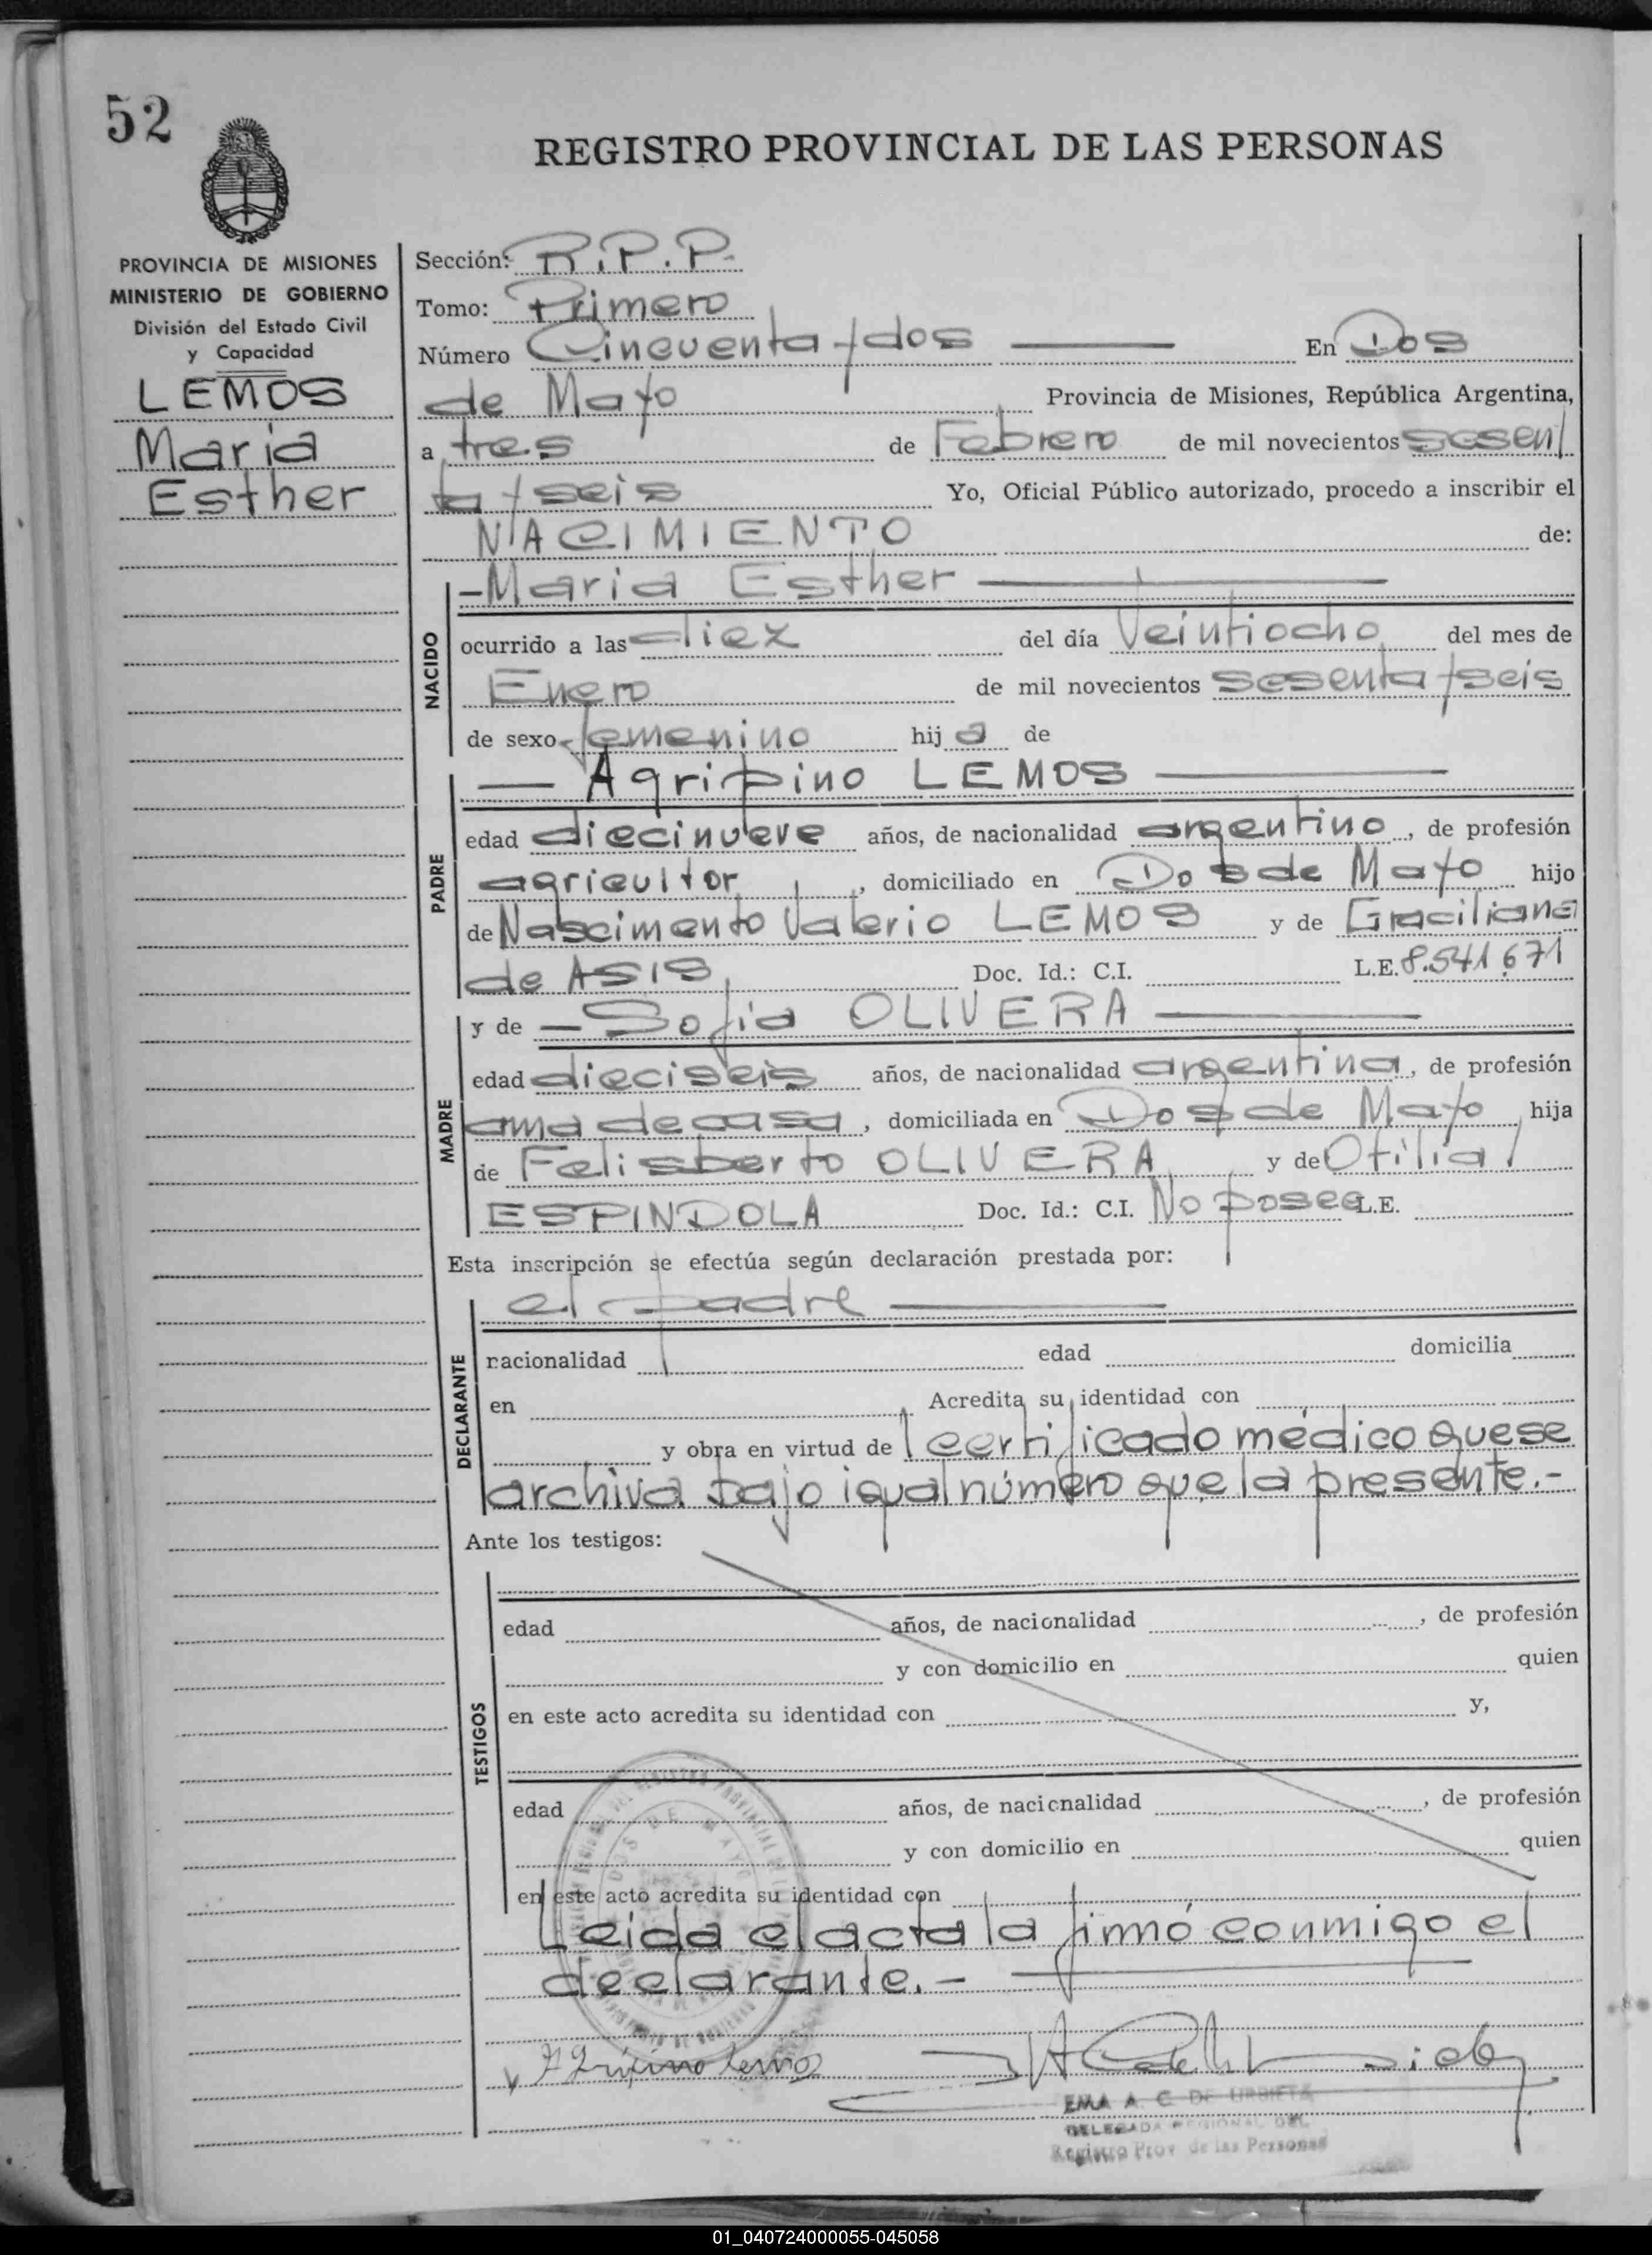 52
REGISTRO PROVINCIAL DE LAS PERSONAS
PROVINCIA DE MISIONES
MINISTERIO DE GOBIERNO
División del Estado Civil
y Capacidad
LEMOS
Maria
Esther
Sección: R.P.P.
Tomo: Primero
Número Cincuenta y dos En Dos
de Mayo Provincia de Misiones, República Argentina,
a tres de Febrero de mil novecientos sesen/
ta y seis Yo, Oficial Público autorizado, procedo a inscribir el
NACIMIENTO de:
NACIDO
-Maria Esther
ocurrido a las diez del día Veintiocho del mes de
Enero de mil novecientos sesenta y seis
de sexo femenino hija de
PADRE
Agripino LEMOS
edad diecinueve años, de nacionalidad argentino, de profesión
agricultor, domiciliado en Dos de Mayo hijo
de Nascimento Valerio LEMOS y de Graciliana
de ASIS Doc. Id.: C.I. L.E. 8.541.671
MADRE
y de Sofia OLIVERA
edad dieciseis años, de nacionalidad argentina, de profesión
ama de casa, domiciliada en Dos de Mayo, hija
de Felisberto OLIVERA y de Otilia/
ESPINDOLA Doc. Id.: C.I. No posee L.E.
Esta inscripción se efectúa según declaración prestada por:
DECLARANTE
el padre
nacionalidad edad domicilia
en Acredita su identidad con
y obra en virtud de certificado médico que se
archiva bajo igual número que la presente.-
Ante los testigos:
TESTIGOS
edad años, de nacionalidad , de profesión
y con domicilio en quien
en este acto acredita su identidad con y,
edad años, de nacionalidad , de profesión
y con domicilio en quien
en este acto acredita su identidad con
Leida el acta la firmó conmigo el
declarante.-
DOS DE MAYO
EMA A. C. DE URBIETA
DELEGADA REGIONAL DEL
Registro Prov de las Personas
01_040724000055-045058